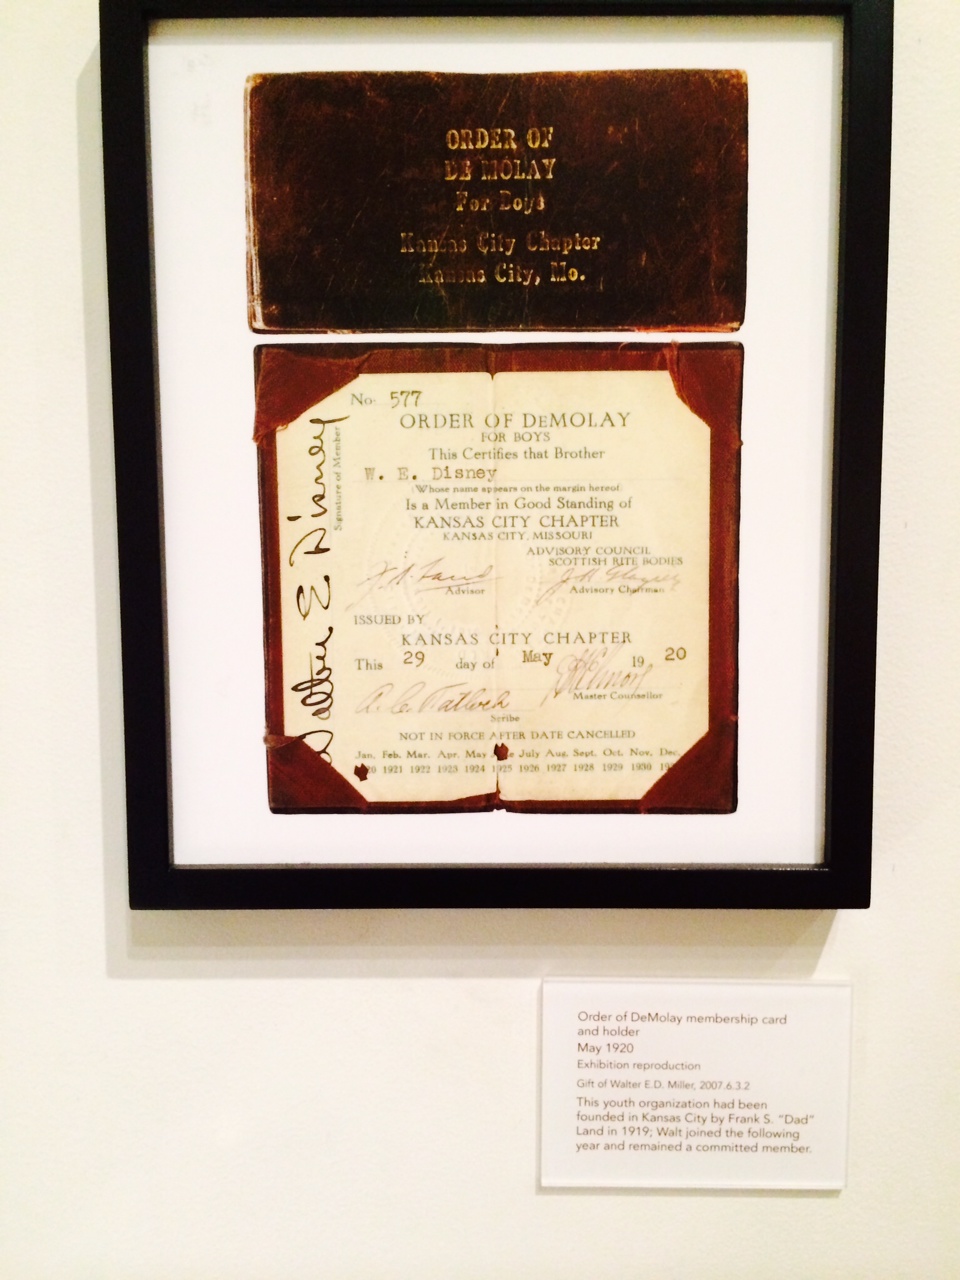 ORDER OF
DE MOLAY
For Boys
Kansas City Chapter
Kansas City, Mo.
No. 577
ORDER OF DEMOLAY
FOR BOYS
This Certifies that Brother
W. E. Disney
(Whose name appears on the margin hereof)
Is a Member in Good Standing of
KANSAS CITY CHAPTER
KANSAS CITY, MISSOURI
ADVISORY COUNCIL
SCOTTISH RITE BODIES
Land
Advisor Advisory Chairman
ISSUED BY
KANSAS CITY CHAPTER
This 29 day of May 1920
Master Counsellor
A. C. Tatlock
Scribe
NOT IN FORCE AFTER DATE CANCELLED
Jan. Feb. Mar. Apr. May July Aug. Sept. Oct. Nov. Dec.
1921 1922 1923 1924 1925 1926 1927 1928 1929 1930
Walter E Disney
Signature of Member
Order of DeMolay membership card
and holder
May 1920
Exhibition reproduction
Gift of Walter E.D. Miller, 2007.6.3.2
This youth organization had been
founded in Kansas City by Frank S. “Dad”
Land in 1919; Walt joined the following
year and remained a committed member.